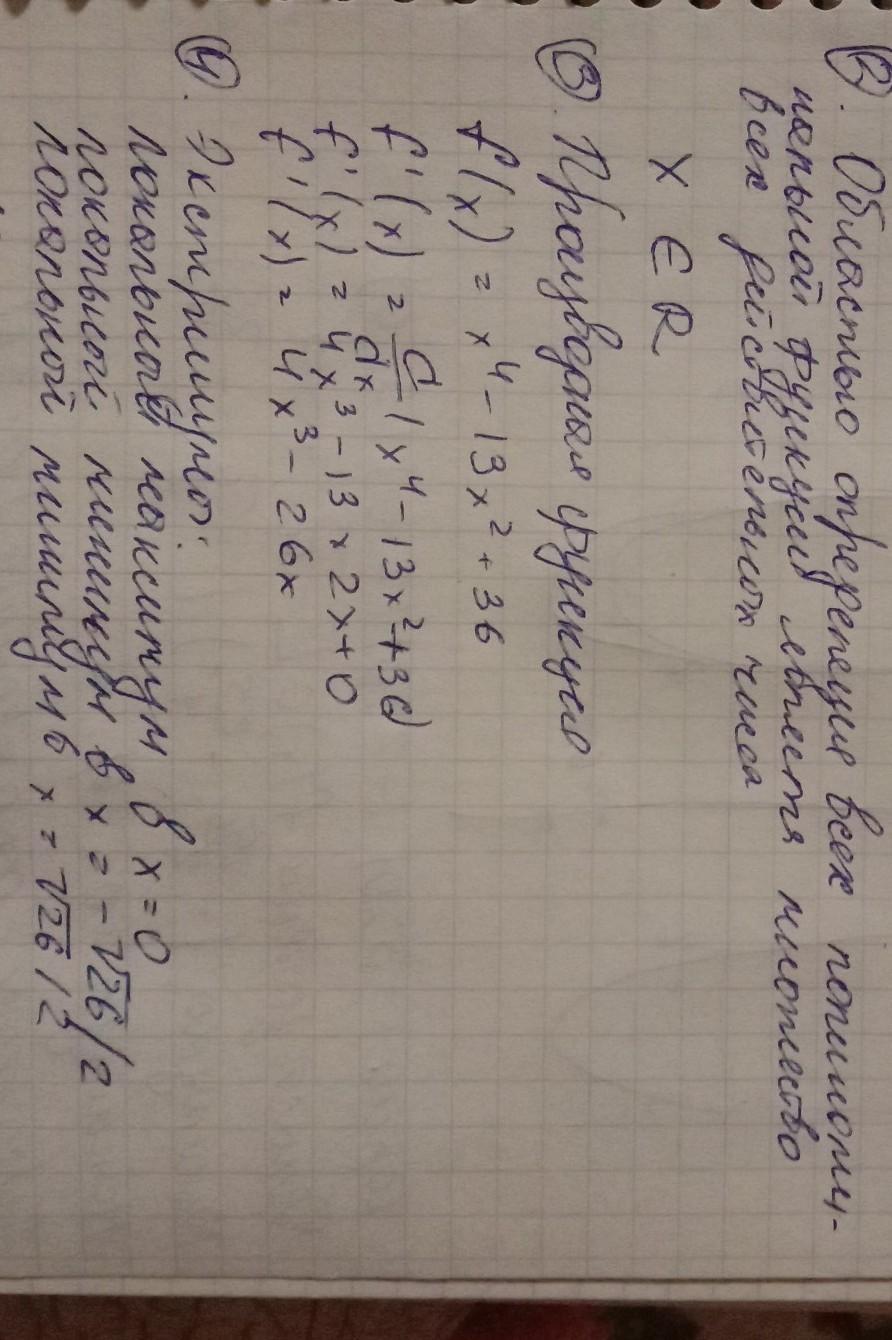 ②. Областью определения всех полиноми-
нальной функции является множество
всех действительных чисел
x ∈ R
③. Производная функции
f(x) = x⁴ - 13x² + 36
f'(x) = d/dx (x⁴ - 13x² + 36)
f'(x) = 4x³ - 13 × 2x + 0
f'(x) = 4x³ - 26x
④. Экстримумы:
локальный максимум в x = 0
локальный минимум в x = -√26/2
локальный минимум в x = √26/2